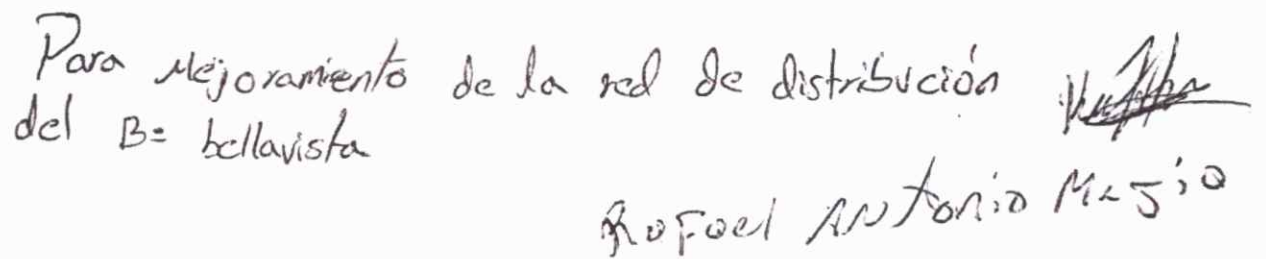 Para Mejoramiento de la red de distribución
del B= bellavista
Rafael Antonio